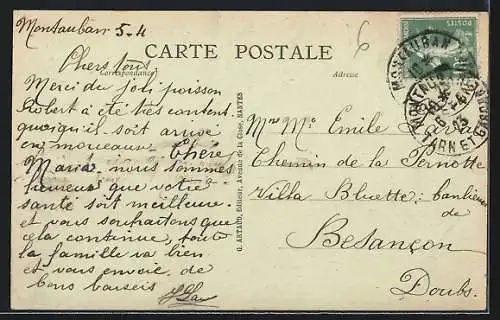 Montauban 5-4
CARTE POSTALE
Correspondance
Adresse
Chers tous
Merci du joli poisson
Robert a été très content
quoiqu'il soit arrivé
en morceaux. Chère
Maria nous sommes
heureux que votre
santé soit meilleure
et vous souhaitons que
cela continue, toute
la famille va bien
et vous envoie de
bons baisers
G. ARTAUD, Éditeur, Avenue de la Close, NANTES
6
MONTAUBAN
TARN ET GARONNE
Mr Me Emile
Chemin de la Pernotte
Villa Bluette; banlieue
de
Besançon
Doubs.